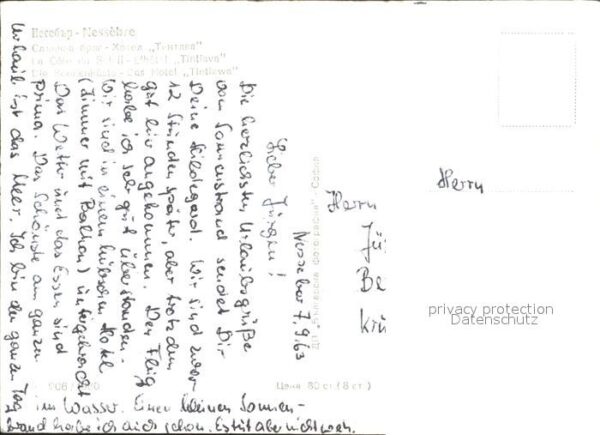 Несебър - Nessèbre
Слънчев бряг - Хотел „Тинтява"
La Côte du Soleil - L'hôtel „Tintiava"
Die Sonnenküste - Das Hotel „Tintiawa"
Nessebar 7.9.63
Lieber Jürgen!
Die herzlichsten Urlaubsgrüße
vom Sonnenstrand sendet Dir
Deine Hildegard. Wir sind zwar
12 Stunden später, aber trotzdem
gut hier angekommen. Den Flug
habe ich sehr gut überstanden.
Wir sind in einem hübschen Hotel
(Zimmer mit Balkon) untergebracht
Das Wetter und das Essen sind
prima. Das Schönste am ganzen
Urlaub ist das Meer. Ich bin den ganzen Tag
im Wasser. Einen kleinen Sonnen-
brand habe ich auch schon. Es tut aber nicht weh.
Цена 80 ст (8 ст.)
Herrn
Herrn
Jü
Be
krü
privacy protection
Datenschutz